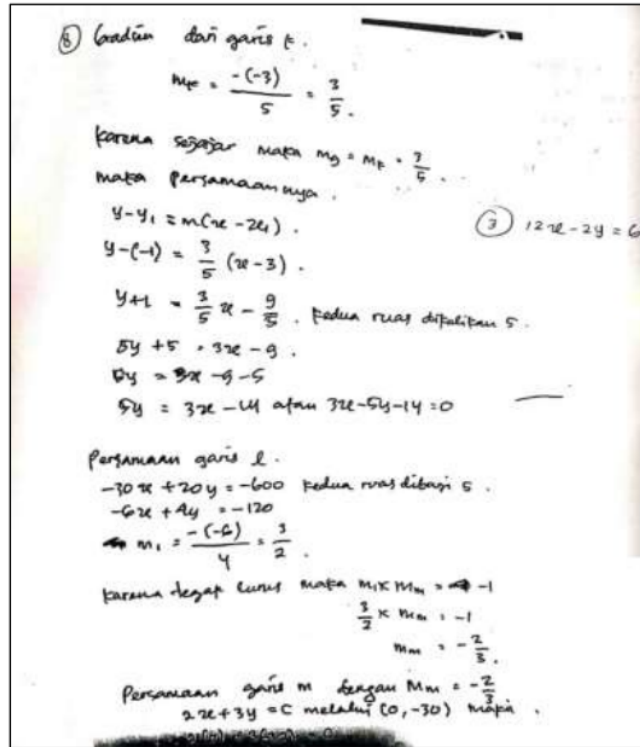 ⑧ Gradien dari garis k.
mk = -(-3)/5 = 3/5.
karena sejajar maka mg = mk = 3/5.
maka persamaannya.
y-y₁ = m(x-x₁).
③ 12x-2y = 6
y-(-1) = 3/5 (x-3).
y+1 = 3/5 x - 9/5. kedua ruas dikalikan 5.
5y+5 = 3x-9.
5y = 3x-9-5
5y = 3x-14 atau 3x-5y-14=0
Persamaan garis l.
-30x+20y = -600 kedua ruas dibagi 5.
-6x+4y = -120
m₁ = -(-6)/4 = 3/2.
karena tegak lurus maka m₁ x mm = -1
3/2 x mm = -1
mm = -2/3.
Persamaan garis m dengan Mm = -2/3
2x+3y = C melalui (0,-30) maka.